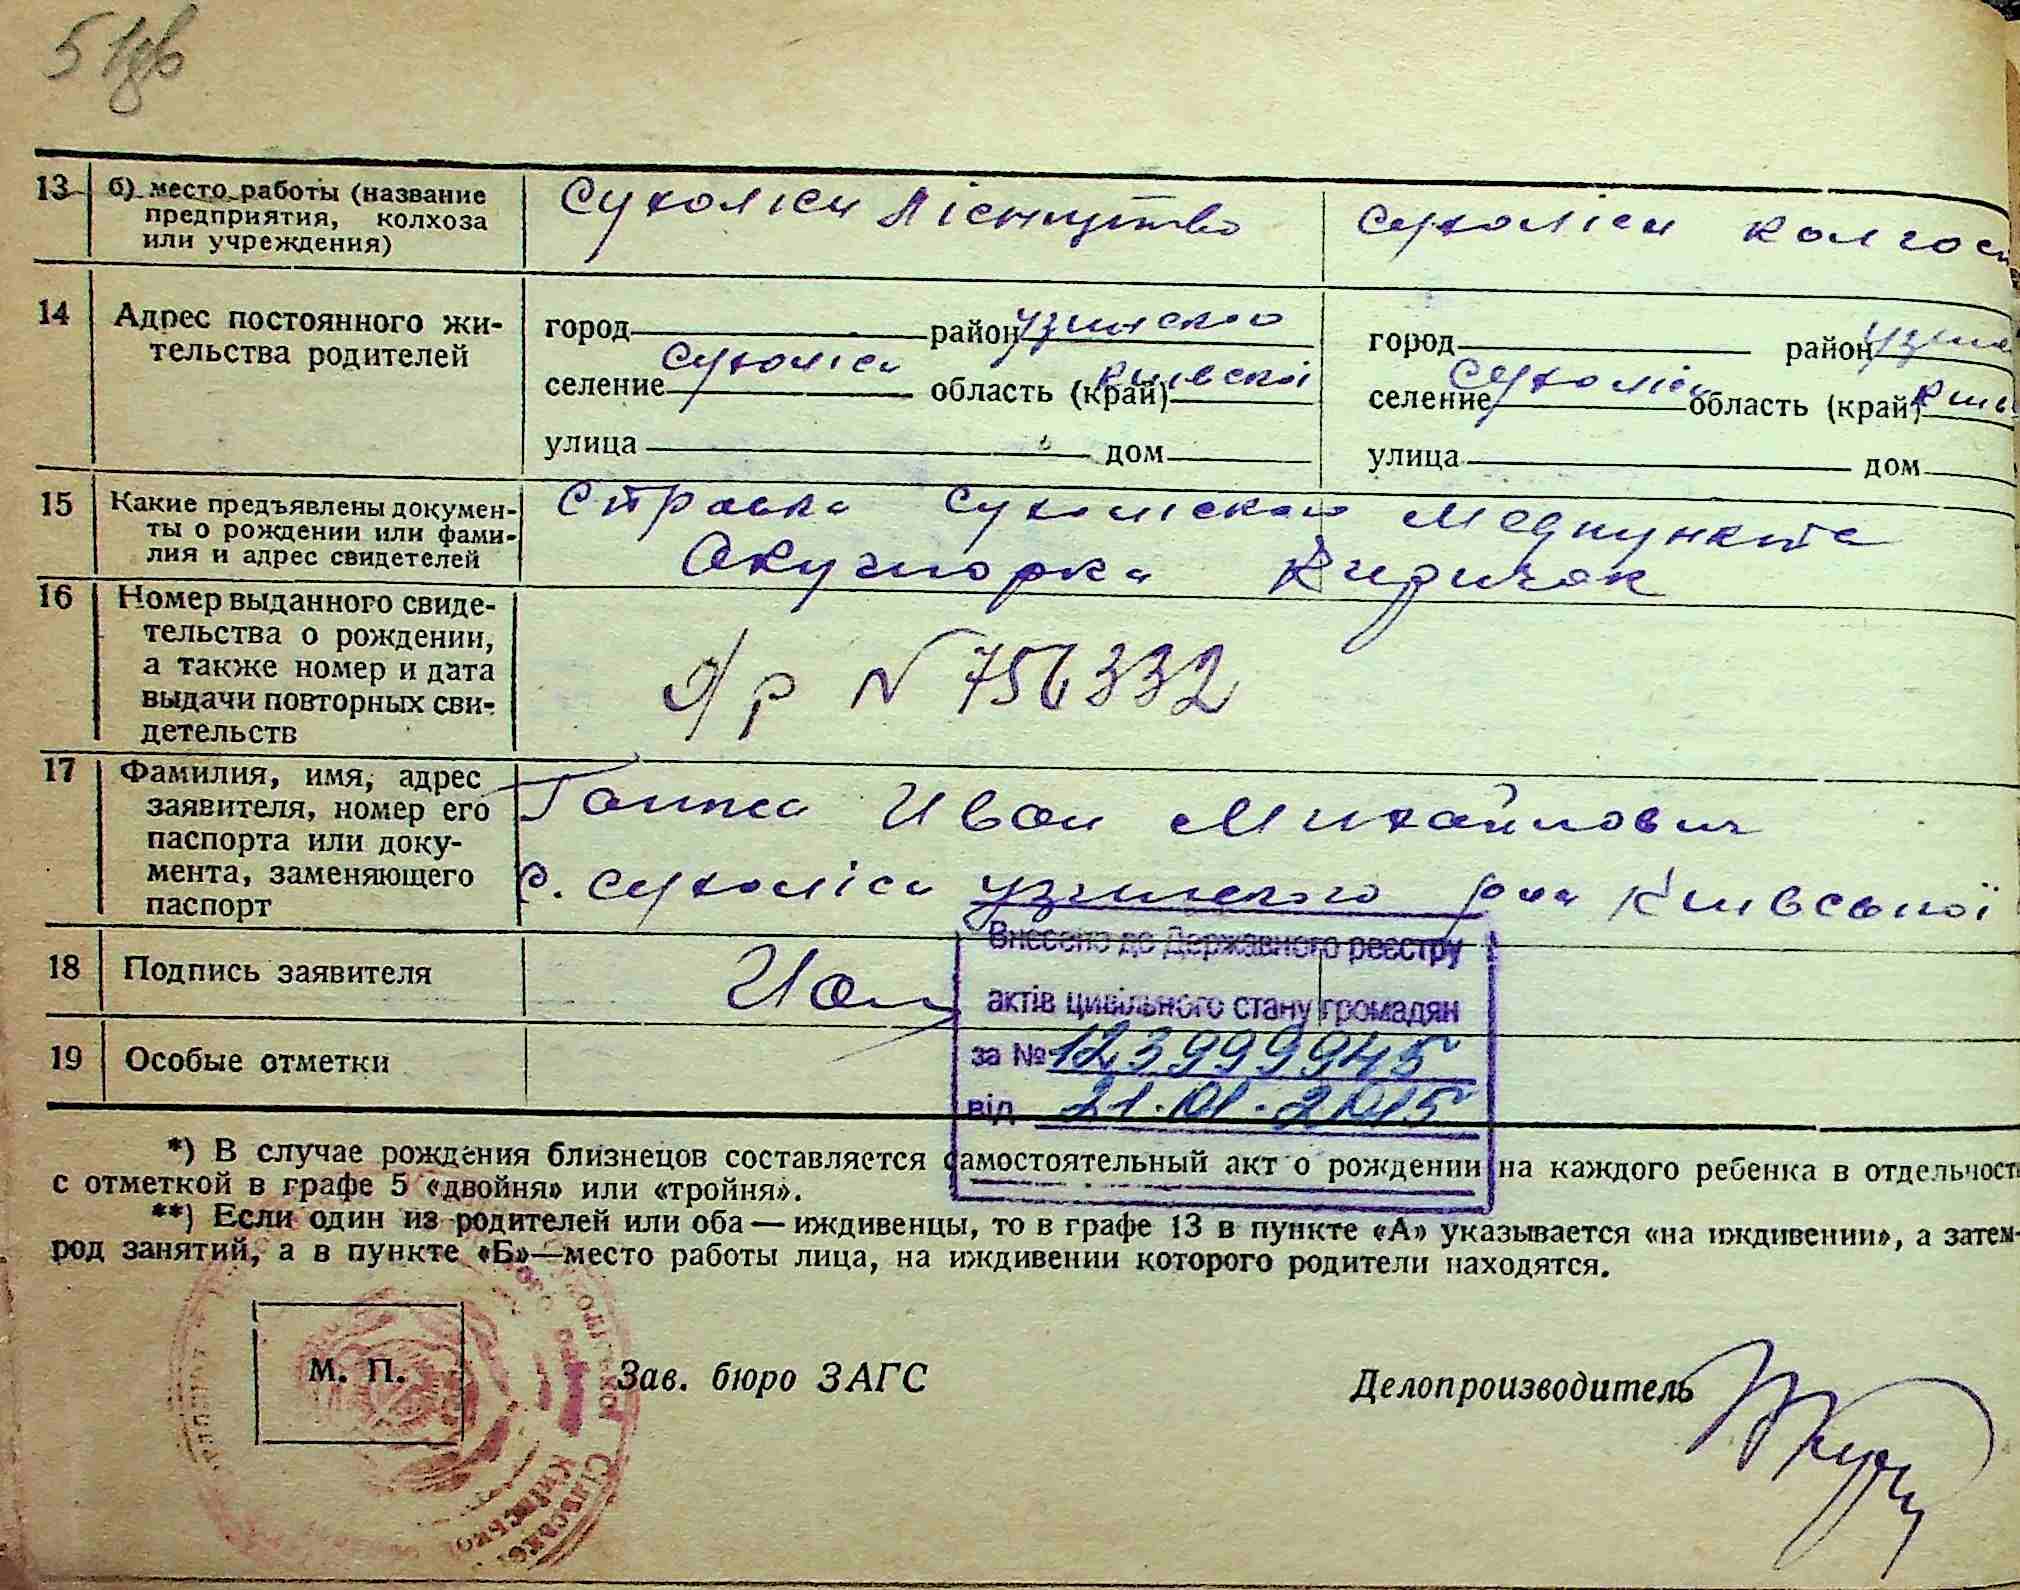 5
13 б) место работы (название
предприятия, колхоза
или учреждения)
Сухоліси лісництво
Сухоліси колгосп
14 Адрес постоянного жи-
тельства родителей
город район Узинского
селение Сухоліси область (край) Київскої
улица дом
город район Узин
селение Сухоліси область (край) Київ
улица дом
15 Какие предъявлены докумен-
ты о рождении или фами-
лия и адрес свидетелей
Справка Сухоліского Медпункта
Акушорка Киричок
16 Номер выданного свиде-
тельства о рождении,
а также номер и дата
выдачи повторных сви-
детельств
N 756332
17 Фамилия, имя, адрес
заявителя, номер его
паспорта или доку-
мента, заменяющего
паспорт
Иван Михайлович
с. Сухоліси Узинского р-на Київської
18 Подпись заявителя
19 Особые отметки
Внесено до Державного реєстру
актів цивільного стану громадян
за № 123999945
від 21.01.2015
*) В случае рождения близнецов составляется самостоятельный акт о рождении на каждого ребенка в отдельност
с отметкой в графе 5 «двойня» или «тройня».
**) Если один из родителей или оба — иждивенцы, то в графе 13 в пункте «А» указывается «на иждивении», а затем-
род занятий, а в пункте «Б»—место работы лица, на иждивении которого родители находятся.
М. П.
Зав. бюро ЗАГС
Делопроизводитель